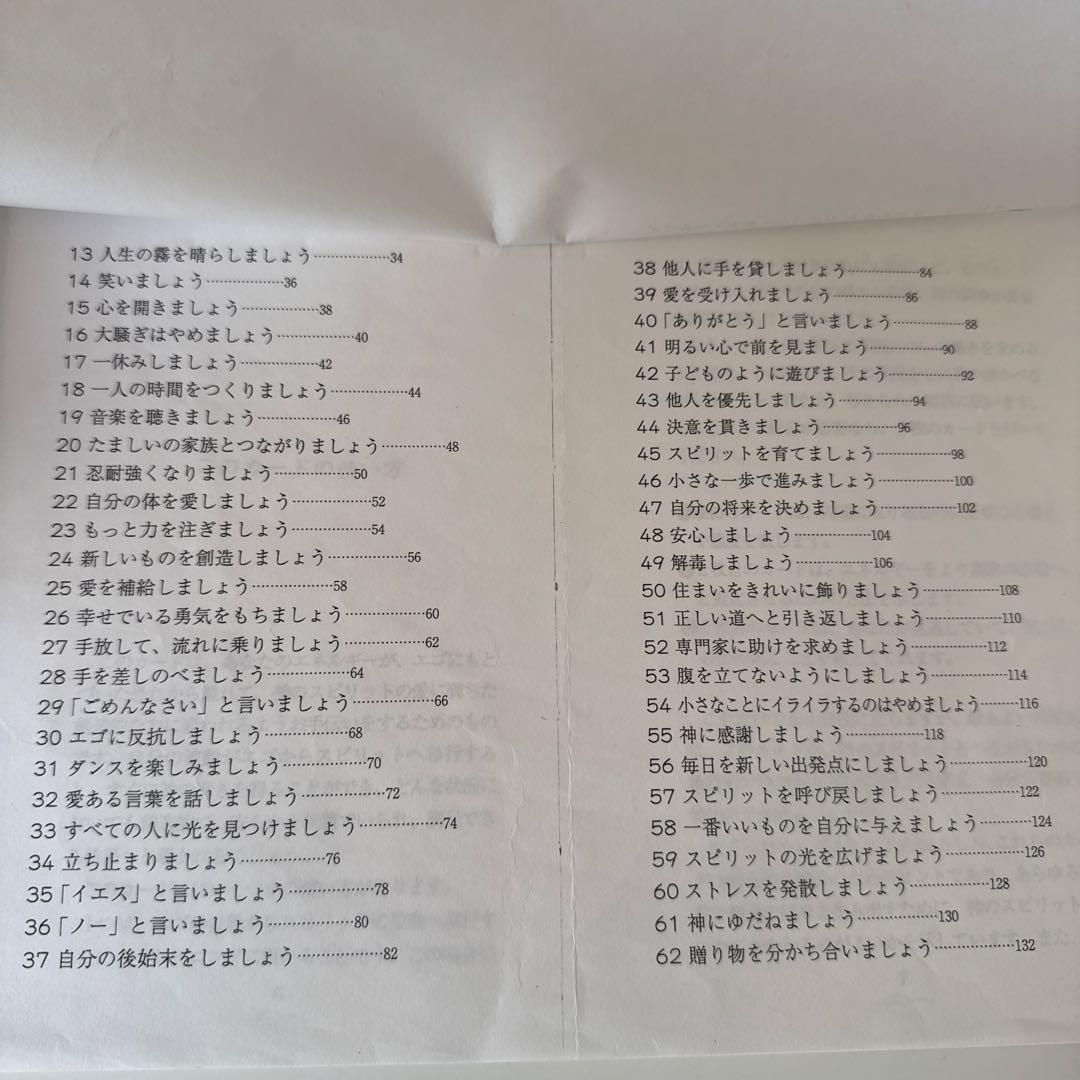 13 人生の霧を晴らしましょう………………34
14 笑いましょう………………36
15 心を開きましょう………………38
16 大騒ぎはやめましょう………………40
17 一休みしましょう………………42
18 一人の時間をつくりましょう………………44
19 音楽を聴きましょう………………46
20 たましいの家族とつながりましょう………………48
21 忍耐強くなりましょう………………50
22 自分の体を愛しましょう………………52
23 もっと力を注ぎましょう………………54
24 新しいものを創造しましょう………………56
25 愛を補給しましょう………………58
26 幸せでいる勇気をもちましょう………………60
27 手放して、流れに乗りましょう………………62
28 手を差しのべましょう………………64
29「ごめんなさい」と言いましょう………………66
30 エゴに反抗しましょう………………68
31 ダンスを楽しみましょう………………70
32 愛ある言葉を話しましょう………………72
33 すべての人に光を見つけましょう………………74
34 立ち止まりましょう………………76
35「イエス」と言いましょう………………78
36「ノー」と言いましょう………………80
37 自分の後始末をしましょう………………82
38 他人に手を貸しましょう………………84
39 愛を受け入れましょう………………86
40「ありがとう」と言いましょう………………88
41 明るい心で前を見ましょう………………90
42 子どものように遊びましょう………………92
43 他人を優先しましょう………………94
44 決意を貫きましょう………………96
45 スピリットを育てましょう………………98
46 小さな一歩で進みましょう………………100
47 自分の将来を決めましょう………………102
48 安心しましょう………………104
49 解毒しましょう………………106
50 住まいをきれいに飾りましょう………………108
51 正しい道へと引き返しましょう………………110
52 専門家に助けを求めましょう………………112
53 腹を立てないようにしましょう………………114
54 小さなことにイライラするのはやめましょう………116
55 神に感謝しましょう………………118
56 毎日を新しい出発点にしましょう………………120
57 スピリットを呼び戻しましょう………………122
58 一番いいものを自分に与えましょう………………124
59 スピリットの光を広げましょう………………126
60 ストレスを発散しましょう………………128
61 神にゆだねましょう………………130
62 贈り物を分かち合いましょう………………132